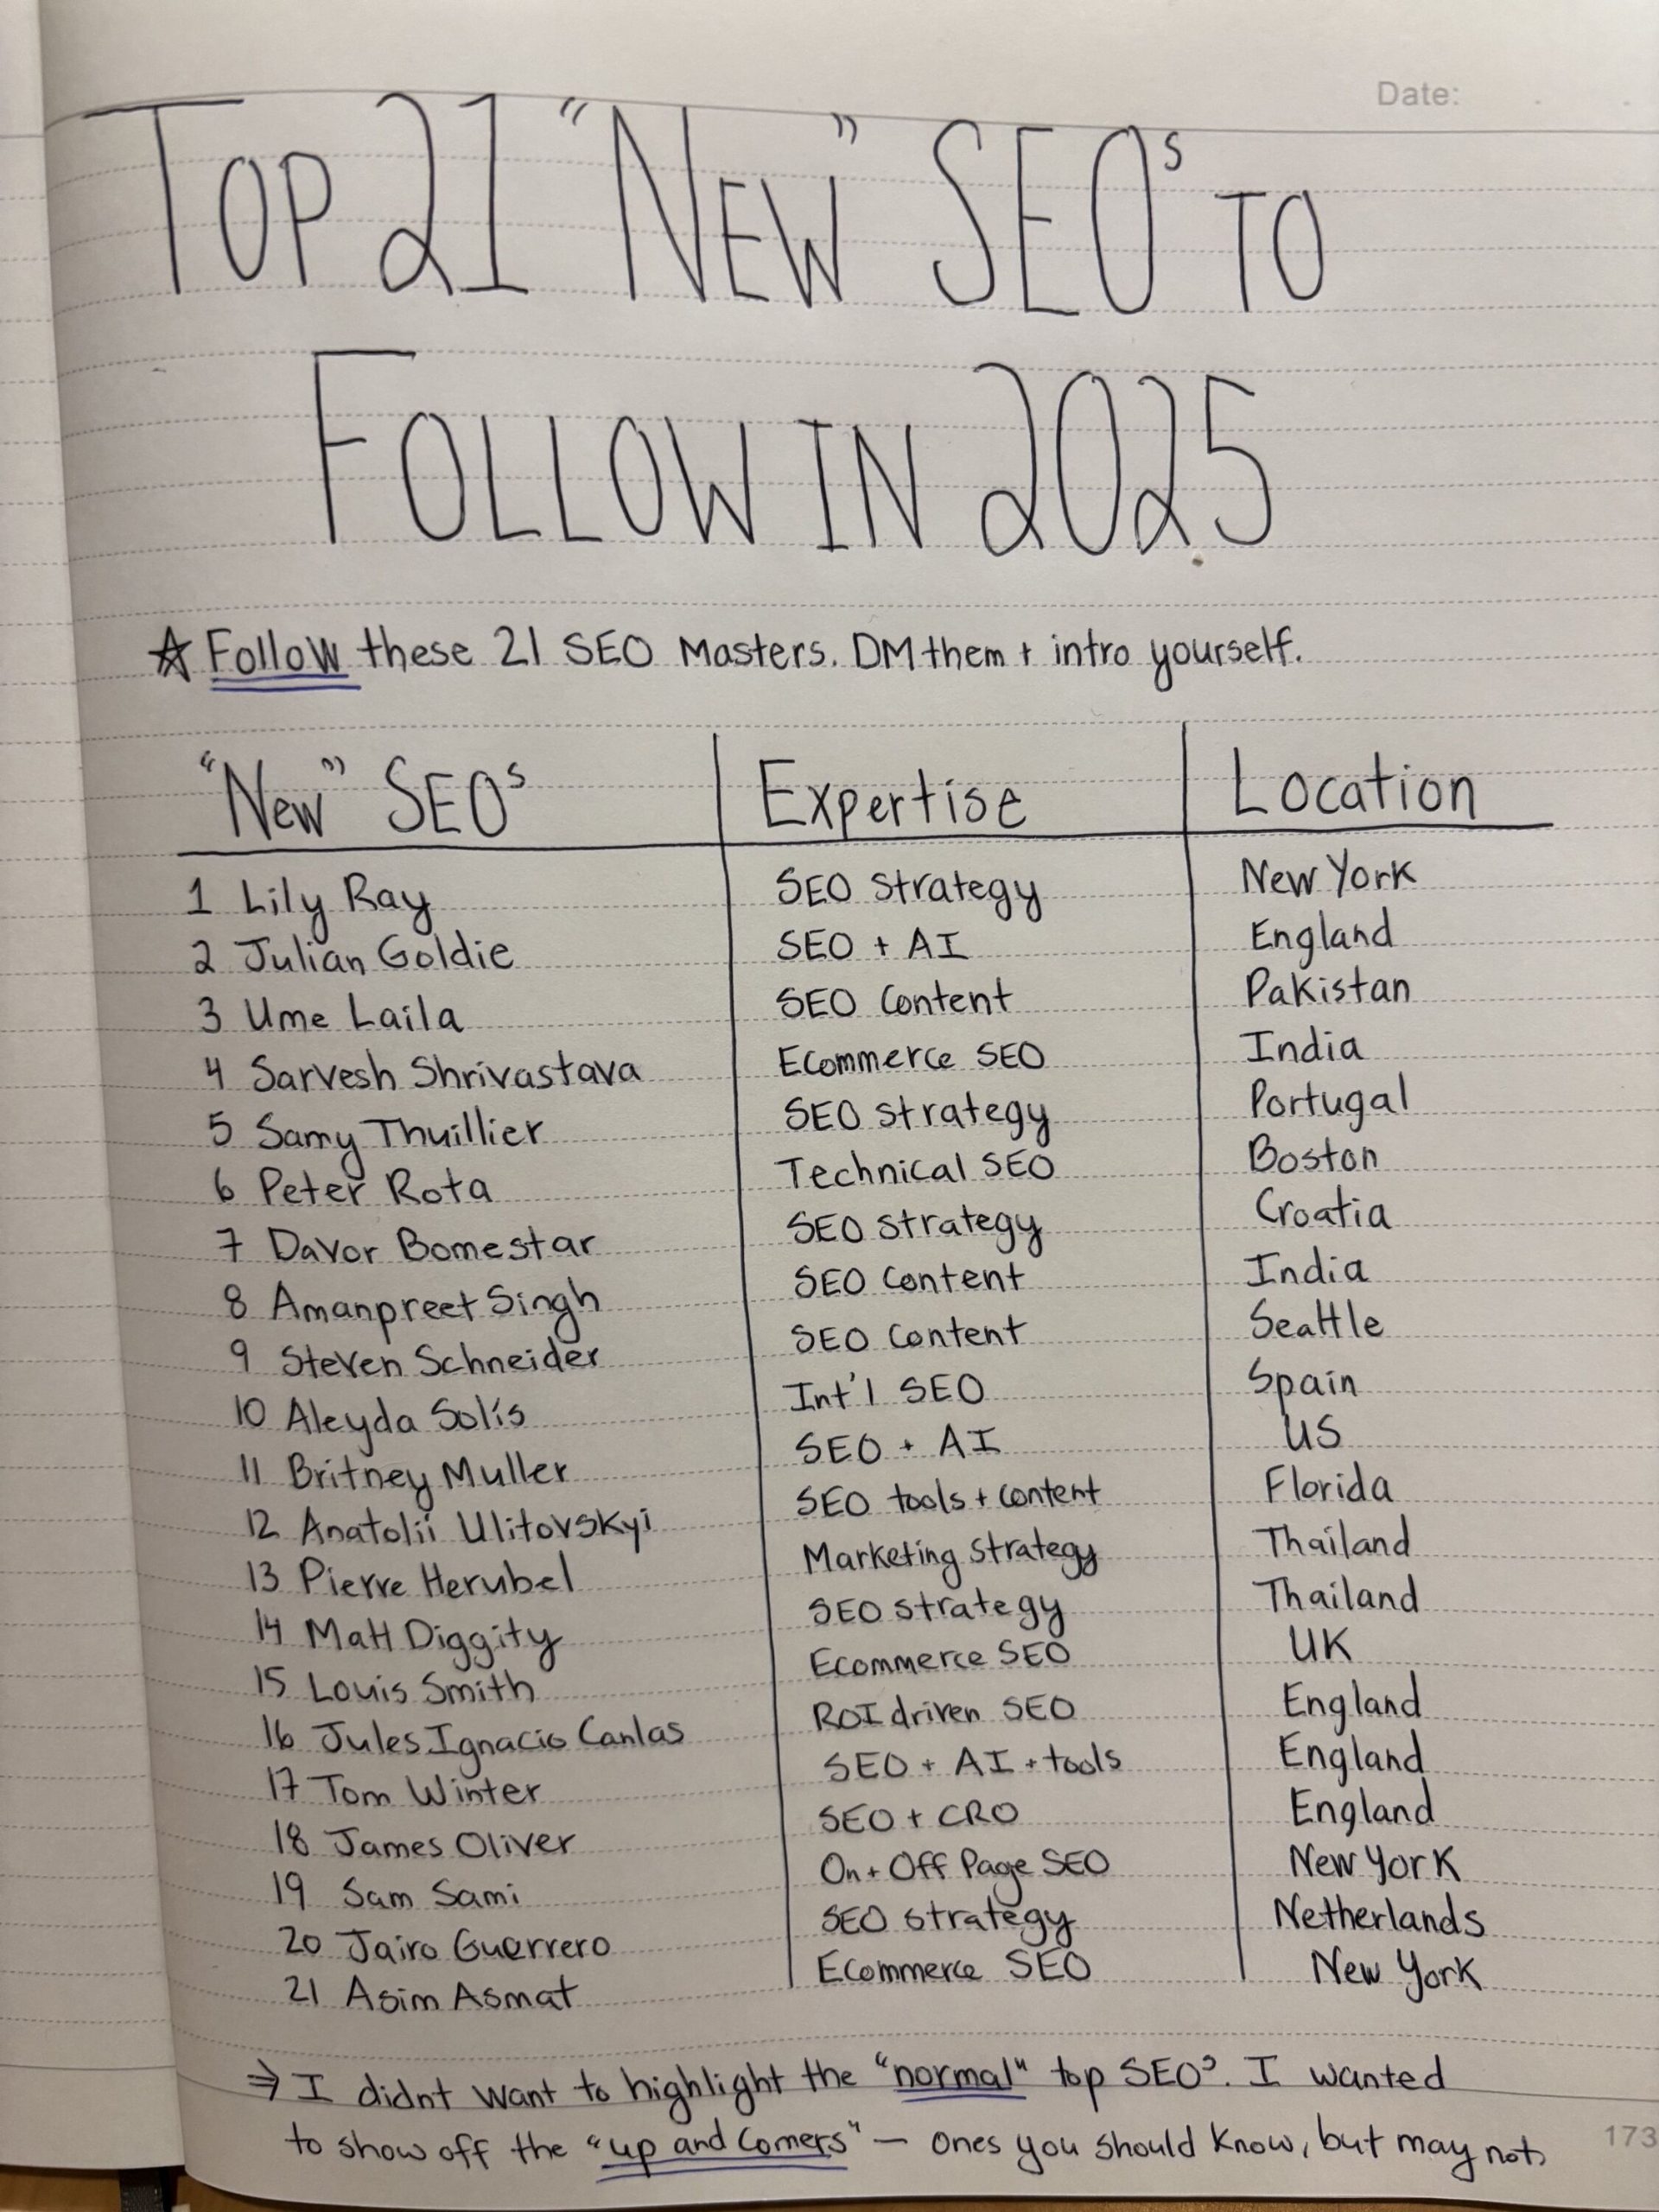 Date:
Top 21 "New" SEOs to
Follow in 2025
☆ Follow these 21 SEO Masters. DM them + intro yourself.
"New" SEOs Expertise Location
1 Lily Ray SEO Strategy New York
2 Julian Goldie SEO + AI England
3 Ume Laila SEO Content Pakistan
4 Sarvesh Shrivastava Ecommerce SEO India
5 Samy Thuillier SEO strategy Portugal
6 Peter Rota Technical SEO Boston
7 Davor Bomestar SEO strategy Croatia
8 Amanpreet Singh SEO content India
9 Steven Schneider SEO Content Seattle
10 Aleyda Solís Int'l SEO Spain
11 Britney Muller SEO + AI US
12 Anatolii Ulitovskyi SEO tools + content Florida
13 Pierre Herubel Marketing Strategy Thailand
14 Matt Diggity SEO strategy Thailand
15 Louis Smith Ecommerce SEO UK
16 Jules Ignacio Canlas ROI driven SEO England
17 Tom Winter SEO + AI + tools England
18 James Oliver SEO + CRO England
19 Sam Sami On + Off Page SEO New York
20 Jairo Guerrero SEO strategy Netherlands
21 Asim Asmat Ecommerce SEO New York
⇒ I didnt want to highlight the "normal" top SEOs. I wanted
to show off the "up and comers" – ones you should know, but may not.
173